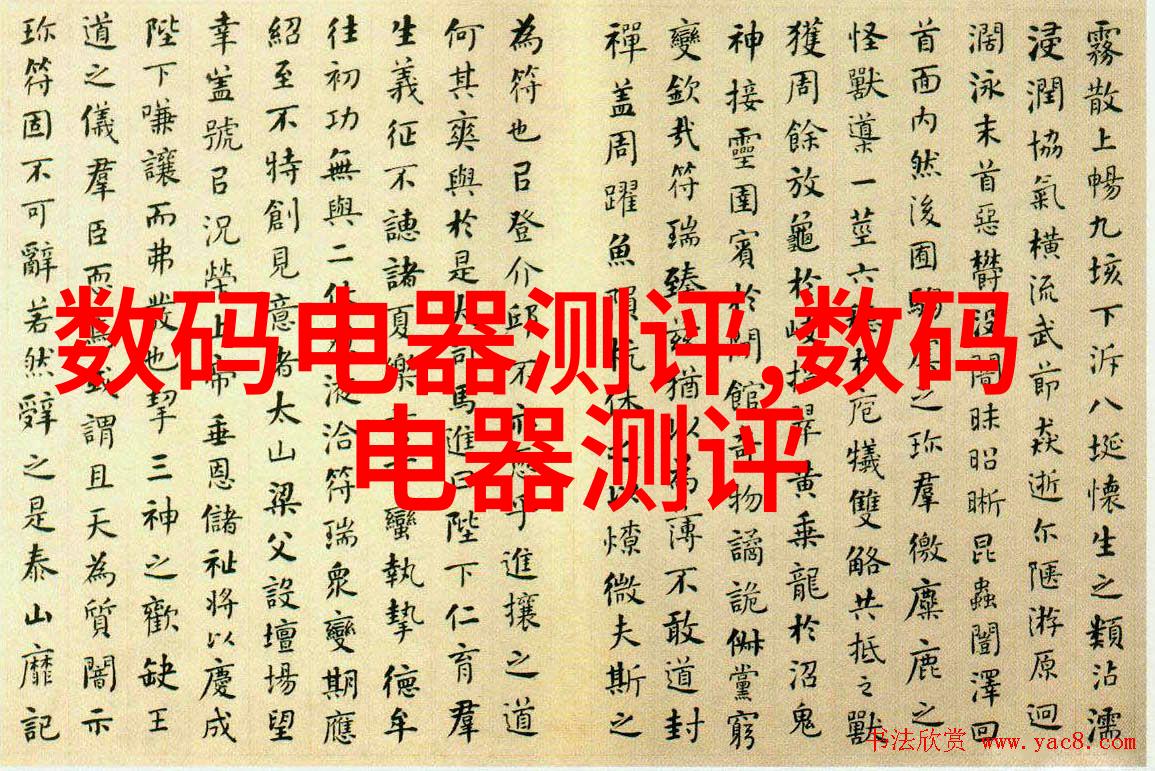 数码电器测评,数码
电器测评
霧散上暢九垓下泝八埏懷生之類沾濡
浸潤協氣橫流武節猋逝尔陿游原迥
濶泳末首惡欝没闇昧昭晰昆蟲闓澤回
首面内然後囿騶虞之珍羣徼麋鹿之
怪獸導一莖六穗於庖犧雙觡共抵之獸
獲周餘放龜於岐招翠黃乗龍於沼鬼
神接靈圉賓於閒館奇物譎詭俶黨窮
變欽哉符瑞臻兹猶以為薄不敢道封
禪盖周躍魚隕杭休之以燎微夫斯之
為符也㠯登介邱不亦恧乎進攘之道
何其爽與於是大司馬進曰陛下仁育羣
生義征不譓諸夏樂貢百蠻執摯德牟
往初功無與二休烈液洽符瑞衆變期應
紹至不特創見意者太山梁父設壇場望
幸盖號㠯况榮上帝垂恩儲祉將以慶成
陛下嗛讓而弗發也挈三神之歡缺王
道之儀羣臣恧焉或謂且天為質闇示
珍符固不可辭若然辭之是泰山靡記
书法欣赏 www.yac8.com